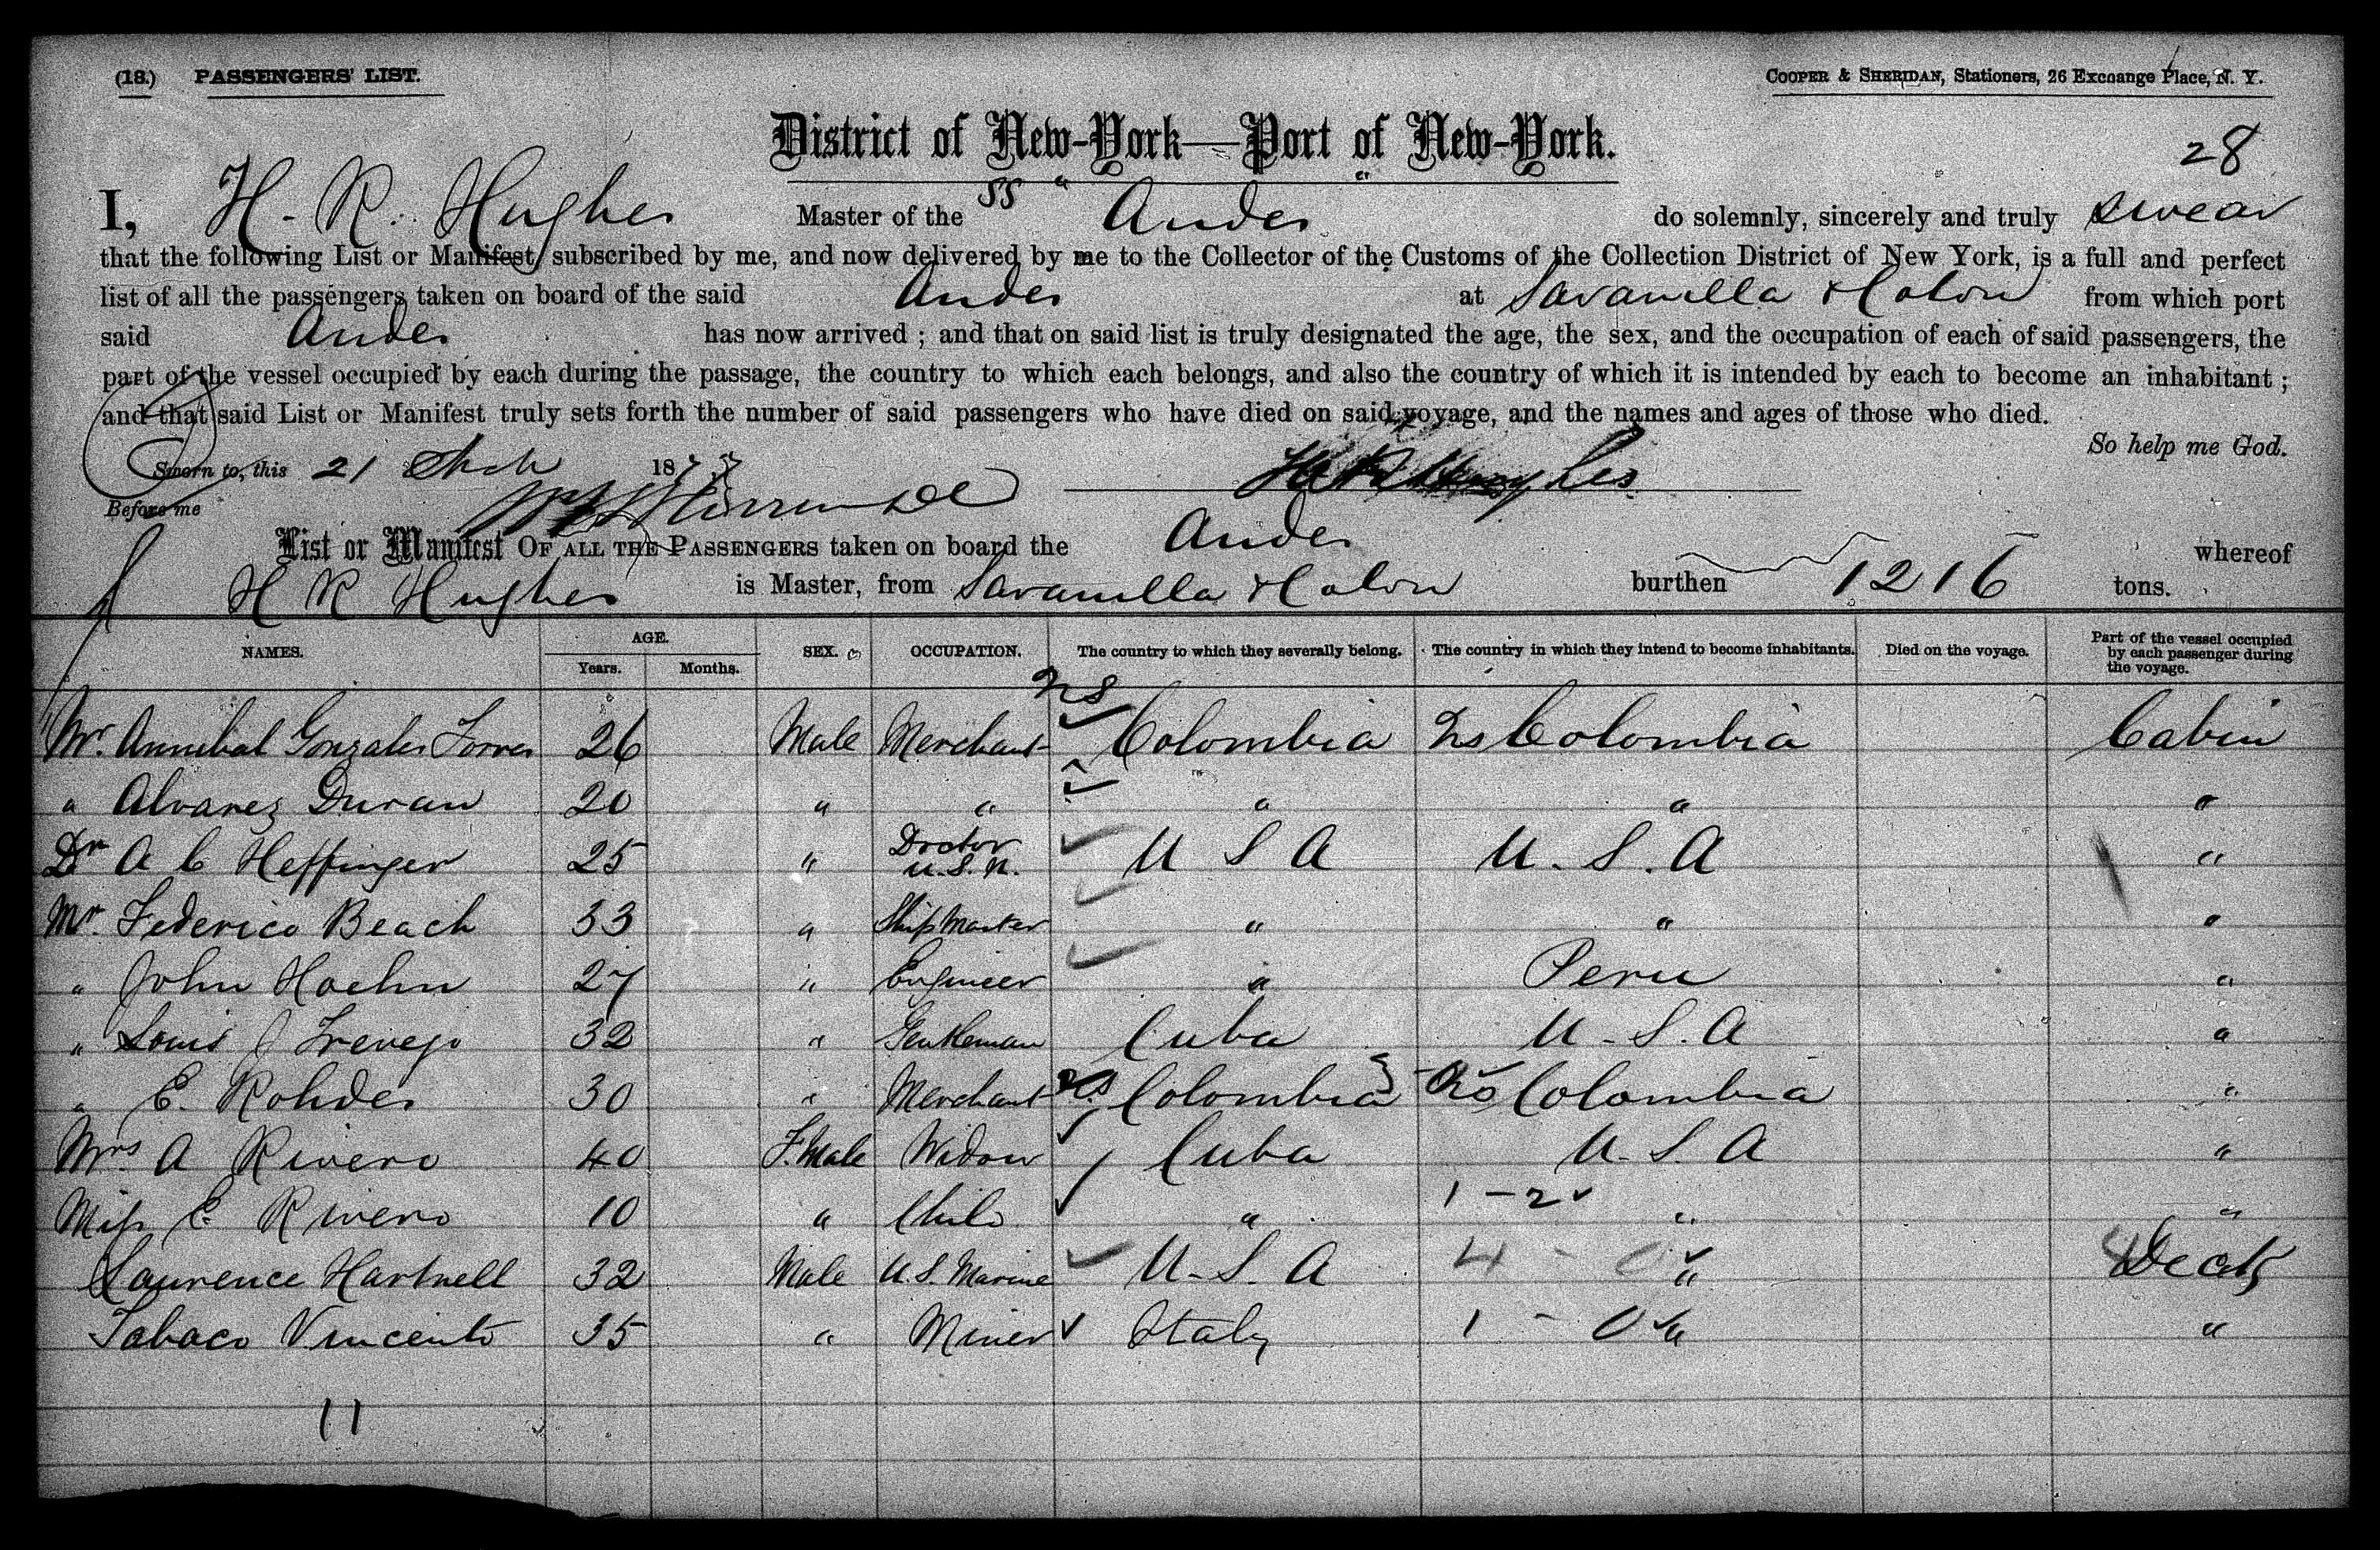 (18.) PASSENGERS' LIST.
COOPER & SHERIDAN, Stationers, 26 Excnange Place, N. Y.
District of New-York—Port of New-York.
28
I, H. R. Hughes Master of the SS Andes do solemnly, sincerely and truly swear
that the following List or Manifest, subscribed by me, and now delivered by me to the Collector of the Customs of the Collection District of New York, is a full and perfect
list of all the passengers taken on board of the said Andes at Savanilla & Colon from which port
said Andes has now arrived ; and that on said list is truly designated the age, the sex, and the occupation of each of said passengers, the
part of the vessel occupied by each during the passage, the country to which each belongs, and also the country of which it is intended by each to become an inhabitant ;
and that said List or Manifest truly sets forth the number of said passengers who have died on said voyage, and the names and ages of those who died.
So help me God.
Sworn to, this 21 Mch 1877
H R Hughes
Before me
List or Manifest OF ALL THE PASSENGERS taken on board the Andes whereof
H R Hughes is Master, from Savanilla & Colon burthen 1216 tons.
NAMES. AGE. Years. Months. SEX. OCCUPATION. The country to which they severally belong. The country in which they intend to become inhabitants. Died on the voyage. Part of the vessel occupied by each passenger during the voyage.
Mr. Annibal Gonzales Torres 26 Male Merchant US Colombia US Colombia Cabin
" Alvarez Duran 20 " " " " "
Dr A C Heffinger 25 " Doctor U.S.N. U S A U. S. A "
Mr. Federico Beach 33 " Ship Master " " "
" John Hoehn 27 " Engineer " Peru "
" Louis J Trevejo 32 " Gentleman Cuba U. S. A "
" E. Rohdes 30 " Merchant US Colombia US Colombia "
Mrs. A Rivero 40 F. Male Widow Cuba U. S. A "
1 - 2
Miss E. Rivero 10 " Child " " "
Laurence Hartnell 32 Male U.S. Marine U. S. A 4 - 0 " Deck
Tabaco Vincento 35 " Miner Italy 1 - 0 " "
11